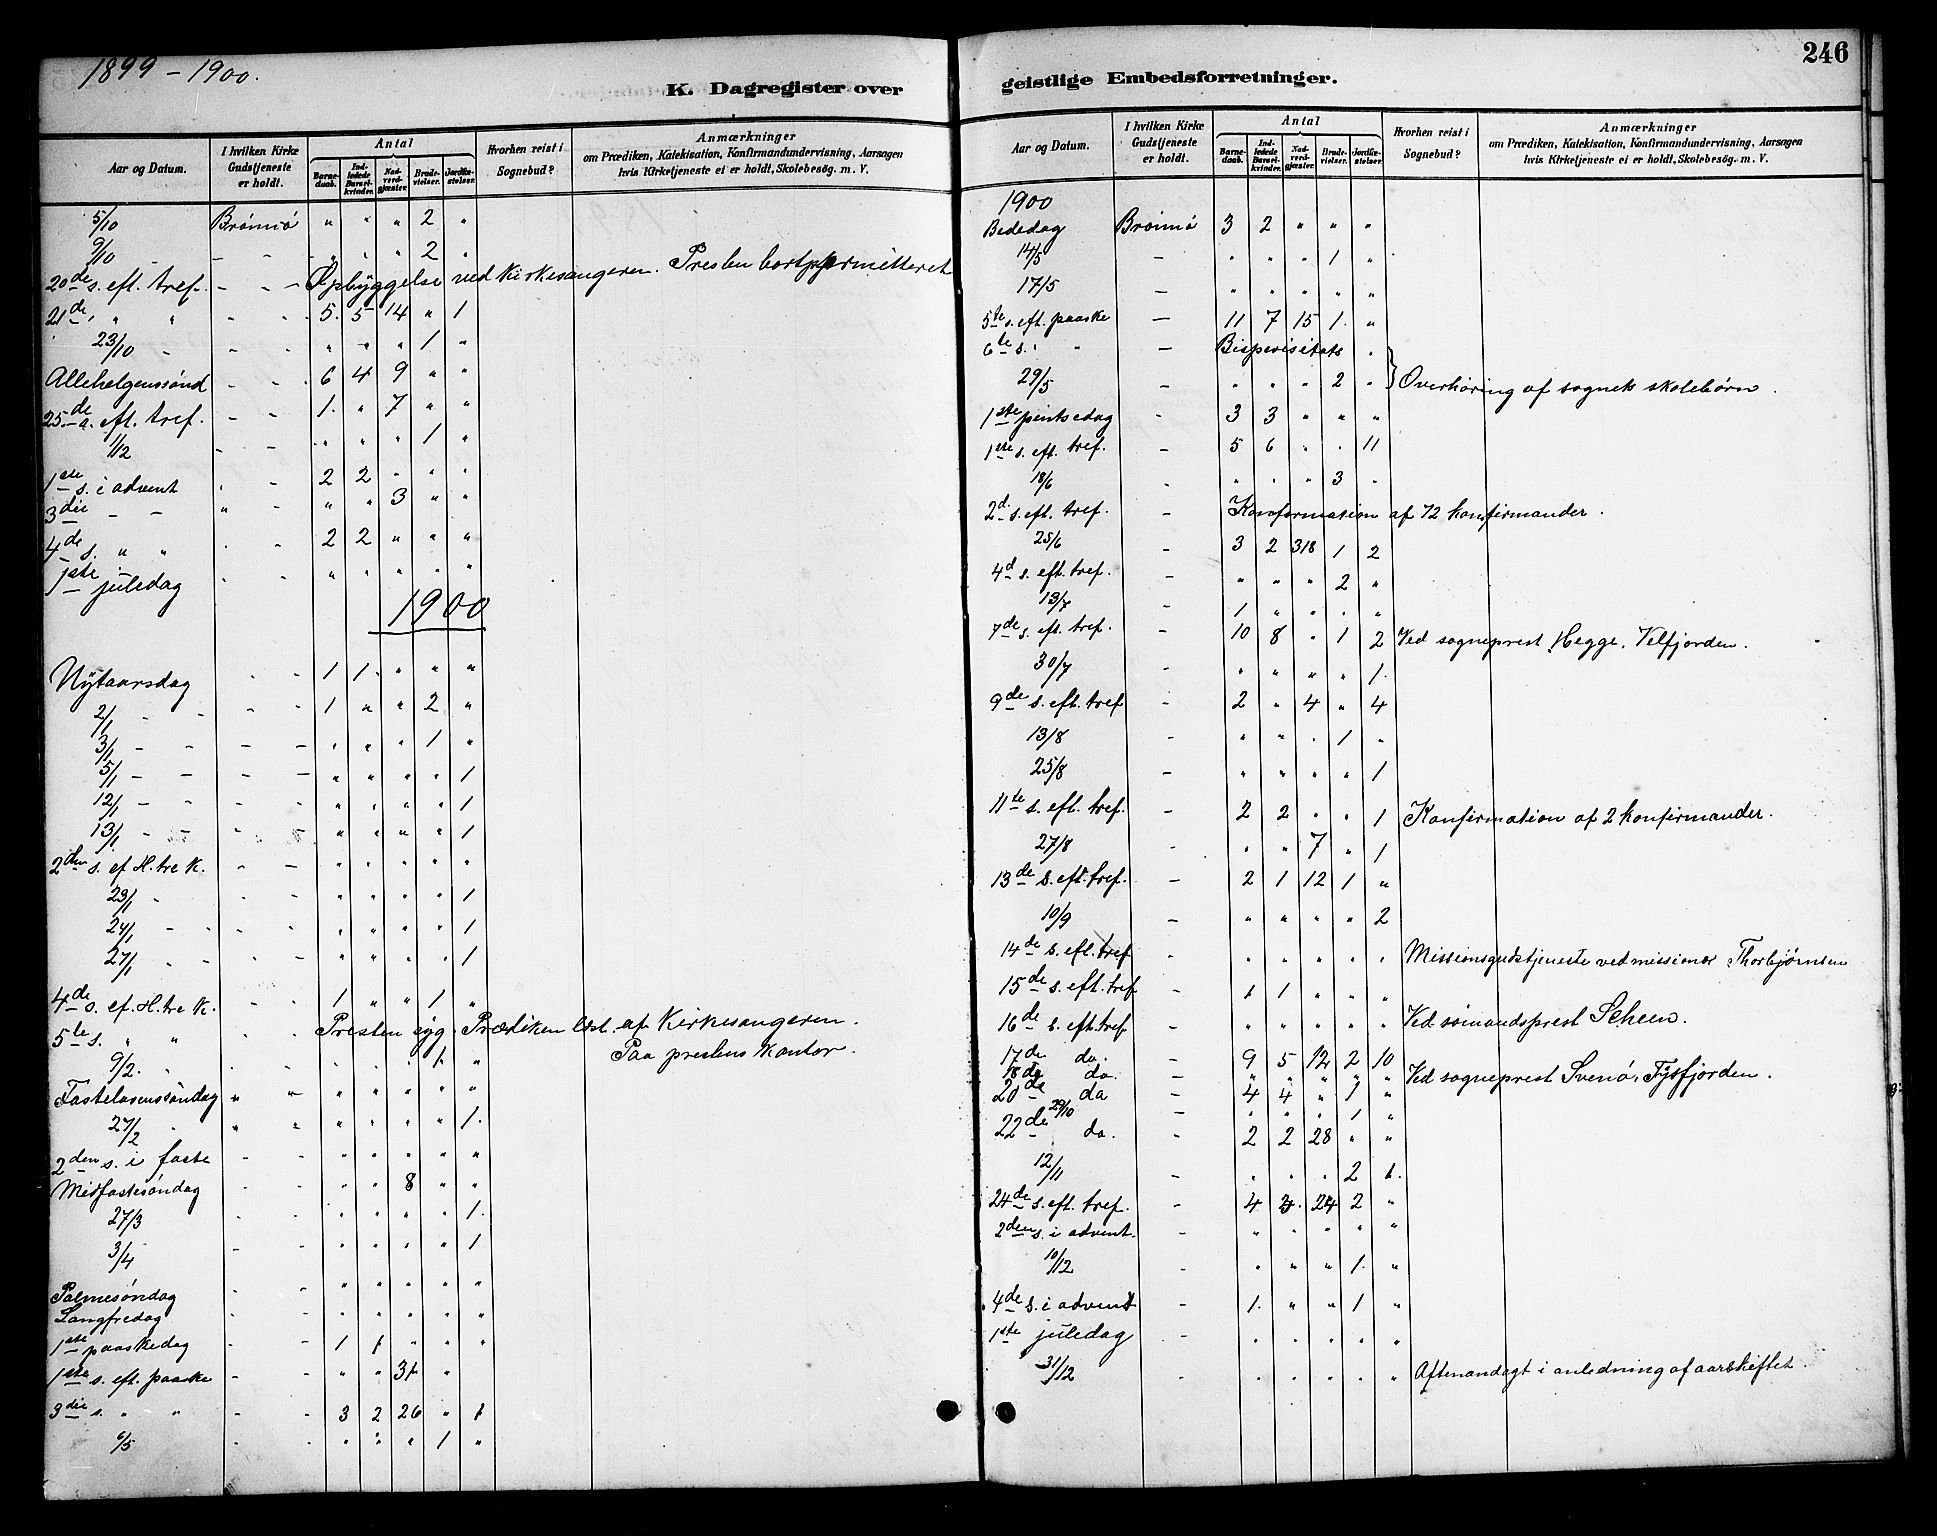 1899 – 1900.
K. Dagregister over
Aar og Datum. I hvilken Kirke Gudstjeneste er holdt. Antal Barnedaab. Indledede Barselkvinder. Nadverdgjæster. Brudevielser. Jordfæstelser. Hvorhen reist i Sognebud? Anmærkninger om Prædiken, Katekisation, Konfirmandundervisning, Aarsagen hvis Kirketjeneste ei er holdt, Skolebesøg. m. V.
5/10 Brønnø " " " 2 "
9/10 – – " " " 2 "
20de s. eft. tref. – – Opbyggelse ved Kirkesangeren. Presten bortpermitteret
21de " " – – 5. 5 14 " 1
23/10 – – " " " 1 "
Allehelgenssønd – – 6 4 9 " "
25de s. eft. tref. – – 1. " 7 " "
1/12 – – " " " 1 "
1ste s. i advent – – 2 2 " " "
3die – – " – " " 3 " "
4de s. " " – – 2 2 " " "
1ste juledag – – " " " " "
1900
Nytaarsdag – – 1 1. " " "
2/1 – – – – 1 " " 2 "
3/1 – – – – " " " 1 "
5/1 – – – – " " " " 1
12/1 – – – – " " " " 1
13/1 – – – – " " " " 1
2den s. ef. H. tre K. – – " " " " "
23/1 – – – " " " " 1
24/1 – – – – " " " " 1
27/1 – – – – " " " " 1
4de s. ef. H. tre K. – – 1 " " 1 "
5te s. " " – – Presten syg. Prædiken læst af Kirkesangeren.
9/2. – – – " " " 1 " Paa prestens Kontor.
Fastelavenssøndag " – " " " " "
27/2 – " " " " " " 1.
2den s. i faste – – " " " " "
Midfastesøndag – – " " 8 " "
27/3 – – " " " " 1.
3/4 – – " " " " 1
Palmesøndag – – " " " " "
Langfredag – – " " " " "
1ste paaskedag – – 1 1 " " "
1ste s. eft. paaske – – " " 31 " "
3die s. " " – – 3 2 26 " 1
6/5 – – " " " 1 "
246
geistlige Embedsforretninger.
Aar og Datum. I hvilken Kirke Gudstjeneste er holdt. Antal Barnedaab. Indledede Barselkvinder. Nadverdgjæster. Brudevielser. Jordfæstelser. Hvorhen reist i Sognebud? Anmærkninger om Prædiken, Katekisation, Konfirmandundervisning, Aarsagen hvis Kirketjeneste ei er holdt, Skolebesøg. m. V.
1900
Bededag Brønnø 3 2 " " "
14/5 – " " " 1 "
17/5 – " " " " "
5te s. eft. paaske – 11 7 15 1. "
6te s. " " – Bispevisitats "
29/5 – " " " 2 " Overhøring af sognets skolebørn.
1ste pintsedag – 3 3 " " "
1ste s. eft. tref. – 5 6 " " 11
18/6 – " " " 3 "
2d. s. eft. tref. – Konfirmation af 72 konfirmander.
25/6 – 3 2 318 1 2
4d s. eft. tref. – " " " 2 "
13/7 – 1 " " " "
7de s. eft. tref. – 10 8 " 1 2 Ved sogneprest Hegge, Velfjorden.
30/7 – " " " " 1.
9de s. eft. tref – 2 " 4 " 4
13/8 – " " " 1 "
25/8 – " " " " 1
11te s. eft. tref. – 2 2 " " 1 Konfirmation af 2 konfirmander.
27/8 – " " 7 " 1
13de s. eft. tref. – 2 1 12 1 "
10/9 – " " " " 2
14de s. eft. tref – " " " " " Missionsgudstjeneste ved missionær Thorbjørnsen
15de s. eft. tref – 1 1 " " "
16de s. eft. tref – " " " " " Ved sømandsprest Scheen.
17de do. – 9 5 12 2 10
18de do. – " " " " " Ved sogneprest Svenø, Tysfjorden.
20de do – 4 4 " 1 "
29/10 – " " " 1 "
22de do. – 2 2 28 " "
12/11 – " " " 2 1.
24de s. eft. tref. – 4 3. 24 2 "
2den s. i advent. – " " " " "
10/12 – " " " 1. "
4de s. i advent – 1. " " 1 "
1ste juledag – " " " " "
31/12 – " " " " " Aftenandagt i anledning af aarskiftet.